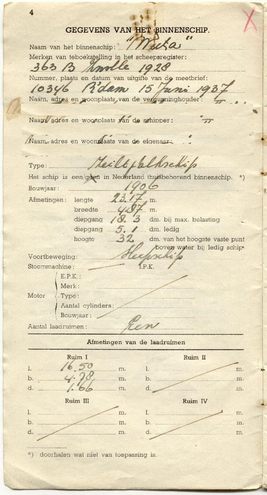 4
GEGEVENS VAN HET BINNENSCHIP.
Naam van het binnenschip:
Merken van teboekstelling in het scheepsregister:
363 B Zwolle 1928
Nummer, plaats en datum van uitgifte van de meetbrief:
10346 R'dam 15 Juni 1937
Naam, adres en woonplaats van de vergunninghouder
Naam, adres en woonplaats van de schipper:
Naam, adres en woonplaats van de eigenaar:
Type:
Het schip is een geen in Nederland thuisbehorend binnenschip. *)
Bouwjaar: 1906
Afmetingen: lengte 23.17 m.
breedte 4.87 m.
diepgang 18.3 dm. bij max. belasting
diepgang 5.1 dm. ledig
hoogte 32 m. van het hoogste vaste punt
boven water bij ledig schip
Voortbeweging: Sleepschip
Stoommachine: I.P.K.
Motor
E.P.K.:
Merk:
Type:
Aantal cylinders:
Bouwjaar:
Aantal laadruimen: Een
Afmetingen van de laadruimen
Ruim I
l. 16.50 m.
b. 4.78 m.
d. 1.66 m.
Ruim II
l. m.
b. m.
d. m.
Ruim III
l. m.
b. m.
d. m.
Ruim IV
l. m.
b. m.
d. m.
*) doorhalen wat niet van toepassing is.